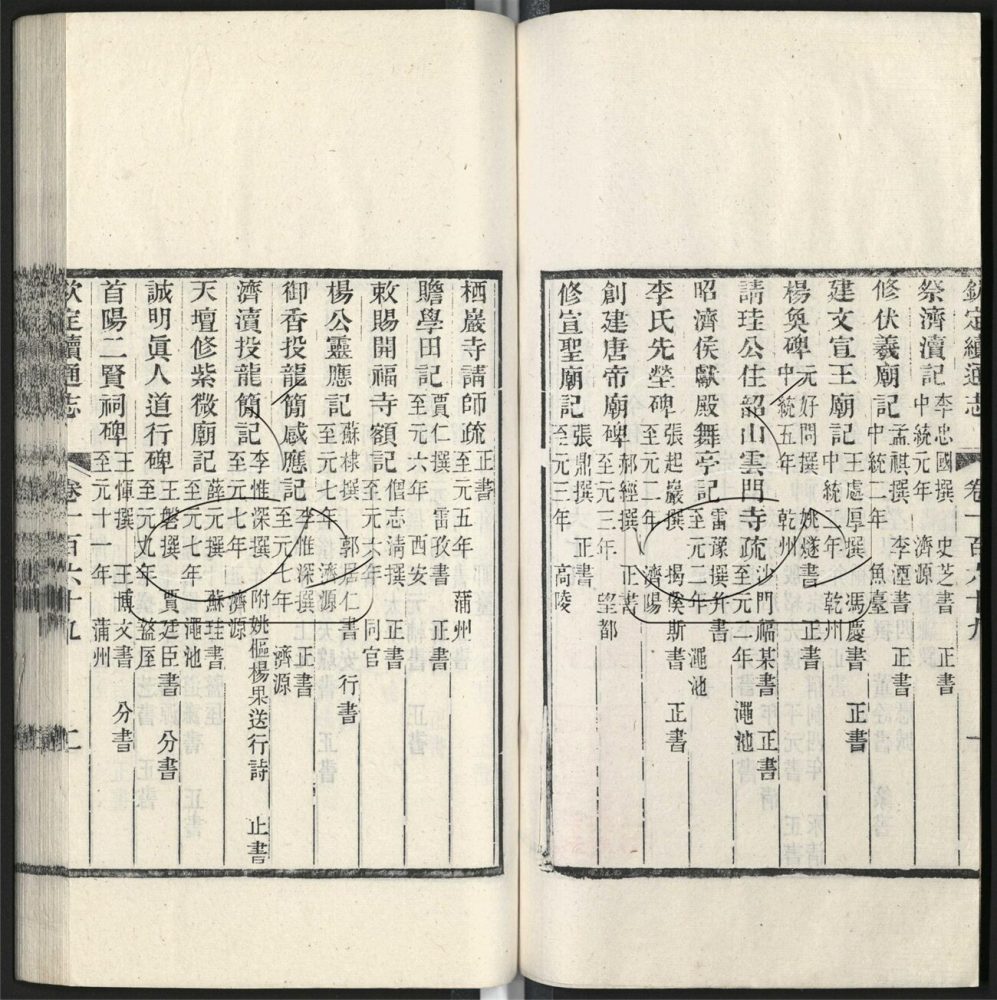 欽定續通志 卷一百六十九 一
祭濟瀆記 李忠國撰 史芝書 正書 中統元年 濟源
修伏羲廟記 孟祺撰 李溼書 正書 中統二年 魚臺
建文宣王廟記 王處厚撰 馮慶書 正書 中統二年 乾州
楊奐碑 元好問撰 姚燧書 正書 中統五年 乾州
請珪公住韶山雲門寺疏 沙門福某書 正書 至元二年 澠池
昭濟侯獻殿舞亭記 雷豫撰并書 至元二年 澠池
李氏先塋碑 張起巖撰 揭傒斯書 正書 至元二年 濟陽
創建唐帝廟碑 郝經撰 正書 至元三年 望都
修宣聖廟記 張鼎撰 正書 至元三年 高陵
栖巖寺請師疏 正書 至元五年 蒲州
贍學田記 賈仁撰 雷孜書 正書 至元六年 西安
敕賜開福寺額記 僧志清撰 正書 至元六年 同官
楊公靈應記 蘇棣撰 郭居仁書 行書 至元七年 濟源
御香投龍簡感應記 李惟深撰 正書 至元七年 濟源
濟瀆投龍簡記 李惟深撰 附姚樞楊果送行詩 正書 至元七年 濟源
天壇修紫微廟記 薛元撰 蘇珪書 至元七年 澠池
誠明眞人道行碑 王磐撰 賈廷臣書 分書 至元九年 盩厔
首陽二賢祠碑 王惲撰 王博文書 分書 至元十一年 蒲州
欽定續通志 卷一百六十九 二